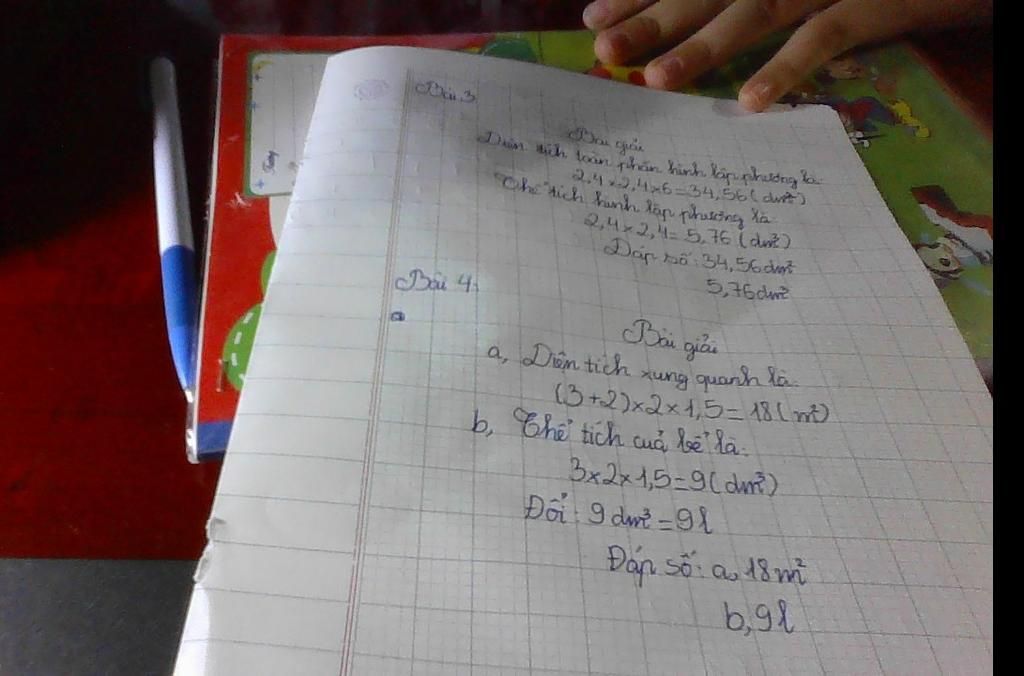 Bài 3
Bài giải
Diện tích toàn phần hình lập phương là:
2,4 x 2,4 x 6 = 34,56 ( dm²)
Thể tích hình lập phương là:
2,4 x 2,4 = 5,76 ( dm³)
Đáp số: 34,56 dm²
5,76 dm³
Bài 4:
Bài giải
a, Diện tích xung quanh là:
(3 + 2) x 2 x 1,5 = 18 ( m²)
b, Thể tích cuả bể là:
3 x 2 x 1,5 = 9 ( dm³)
Đổi: 9 dm³ = 9 l
Đáp số: a, 18 m²
b, 9 l